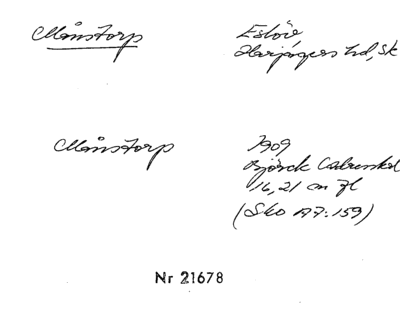 Månstorp Eslöv,
Harjagers hd, Sk
Månstorp 1909
Björck
16,21 cm fl
(Sko A7:159)
Nr 21678